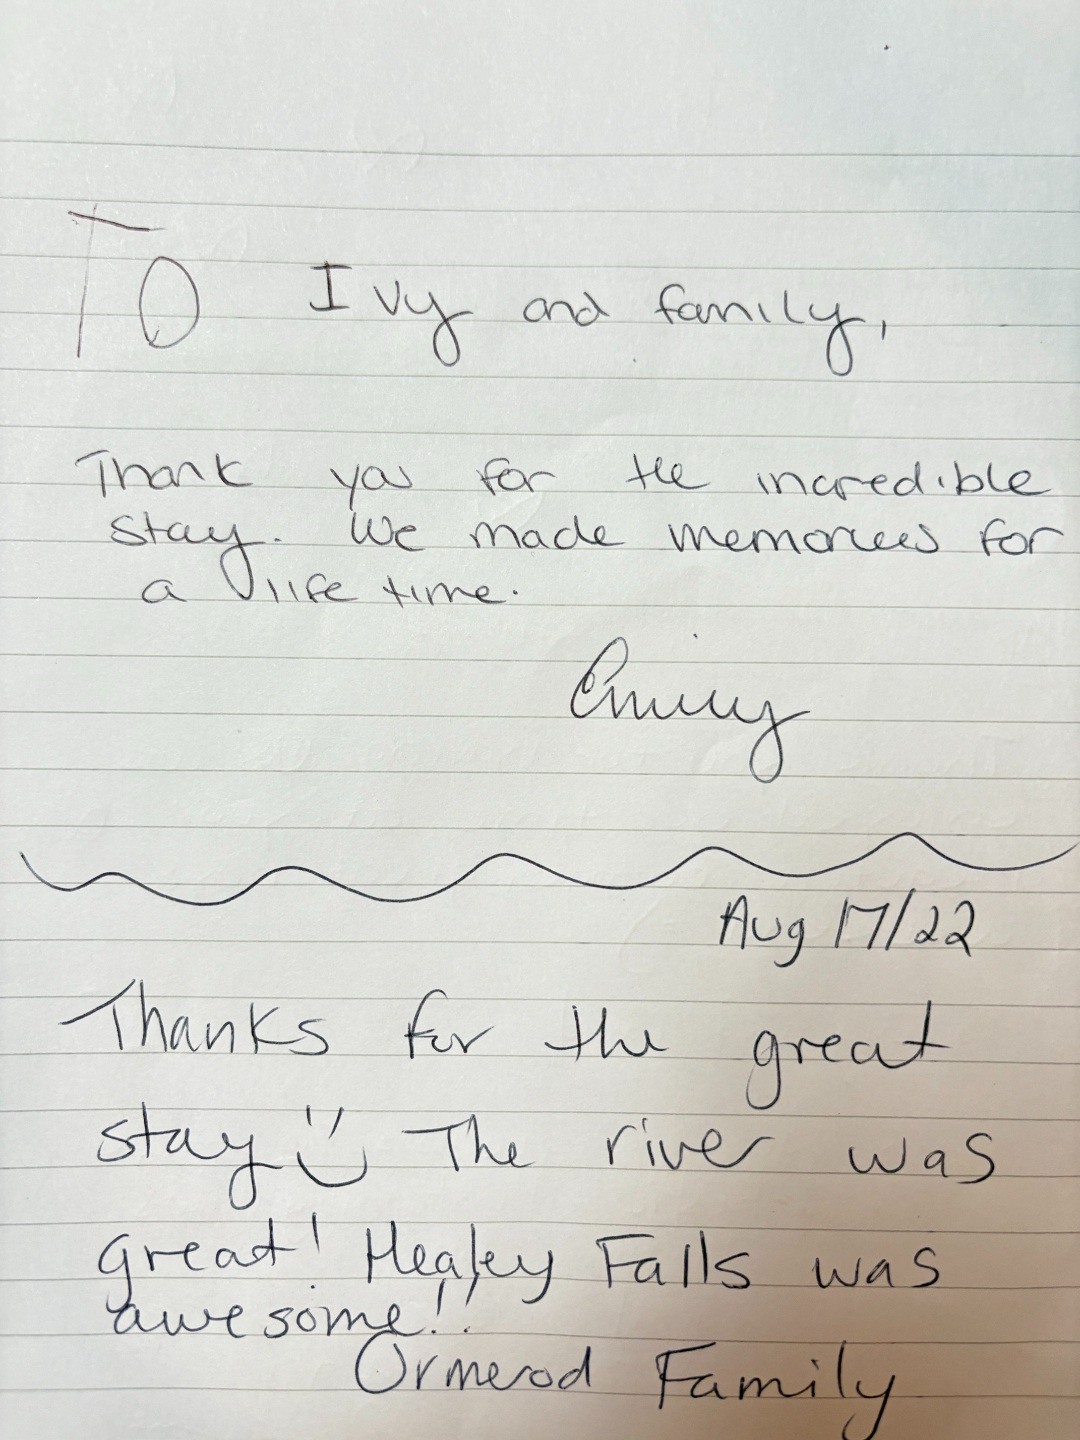 TO Ivy and family,
Thank you for the incredible
stay. We made memories for
a life time.
Emily
Aug 17/22
Thanks for the great
stay The river was
great! Healey Falls was
awesome!!
Ormerod Family